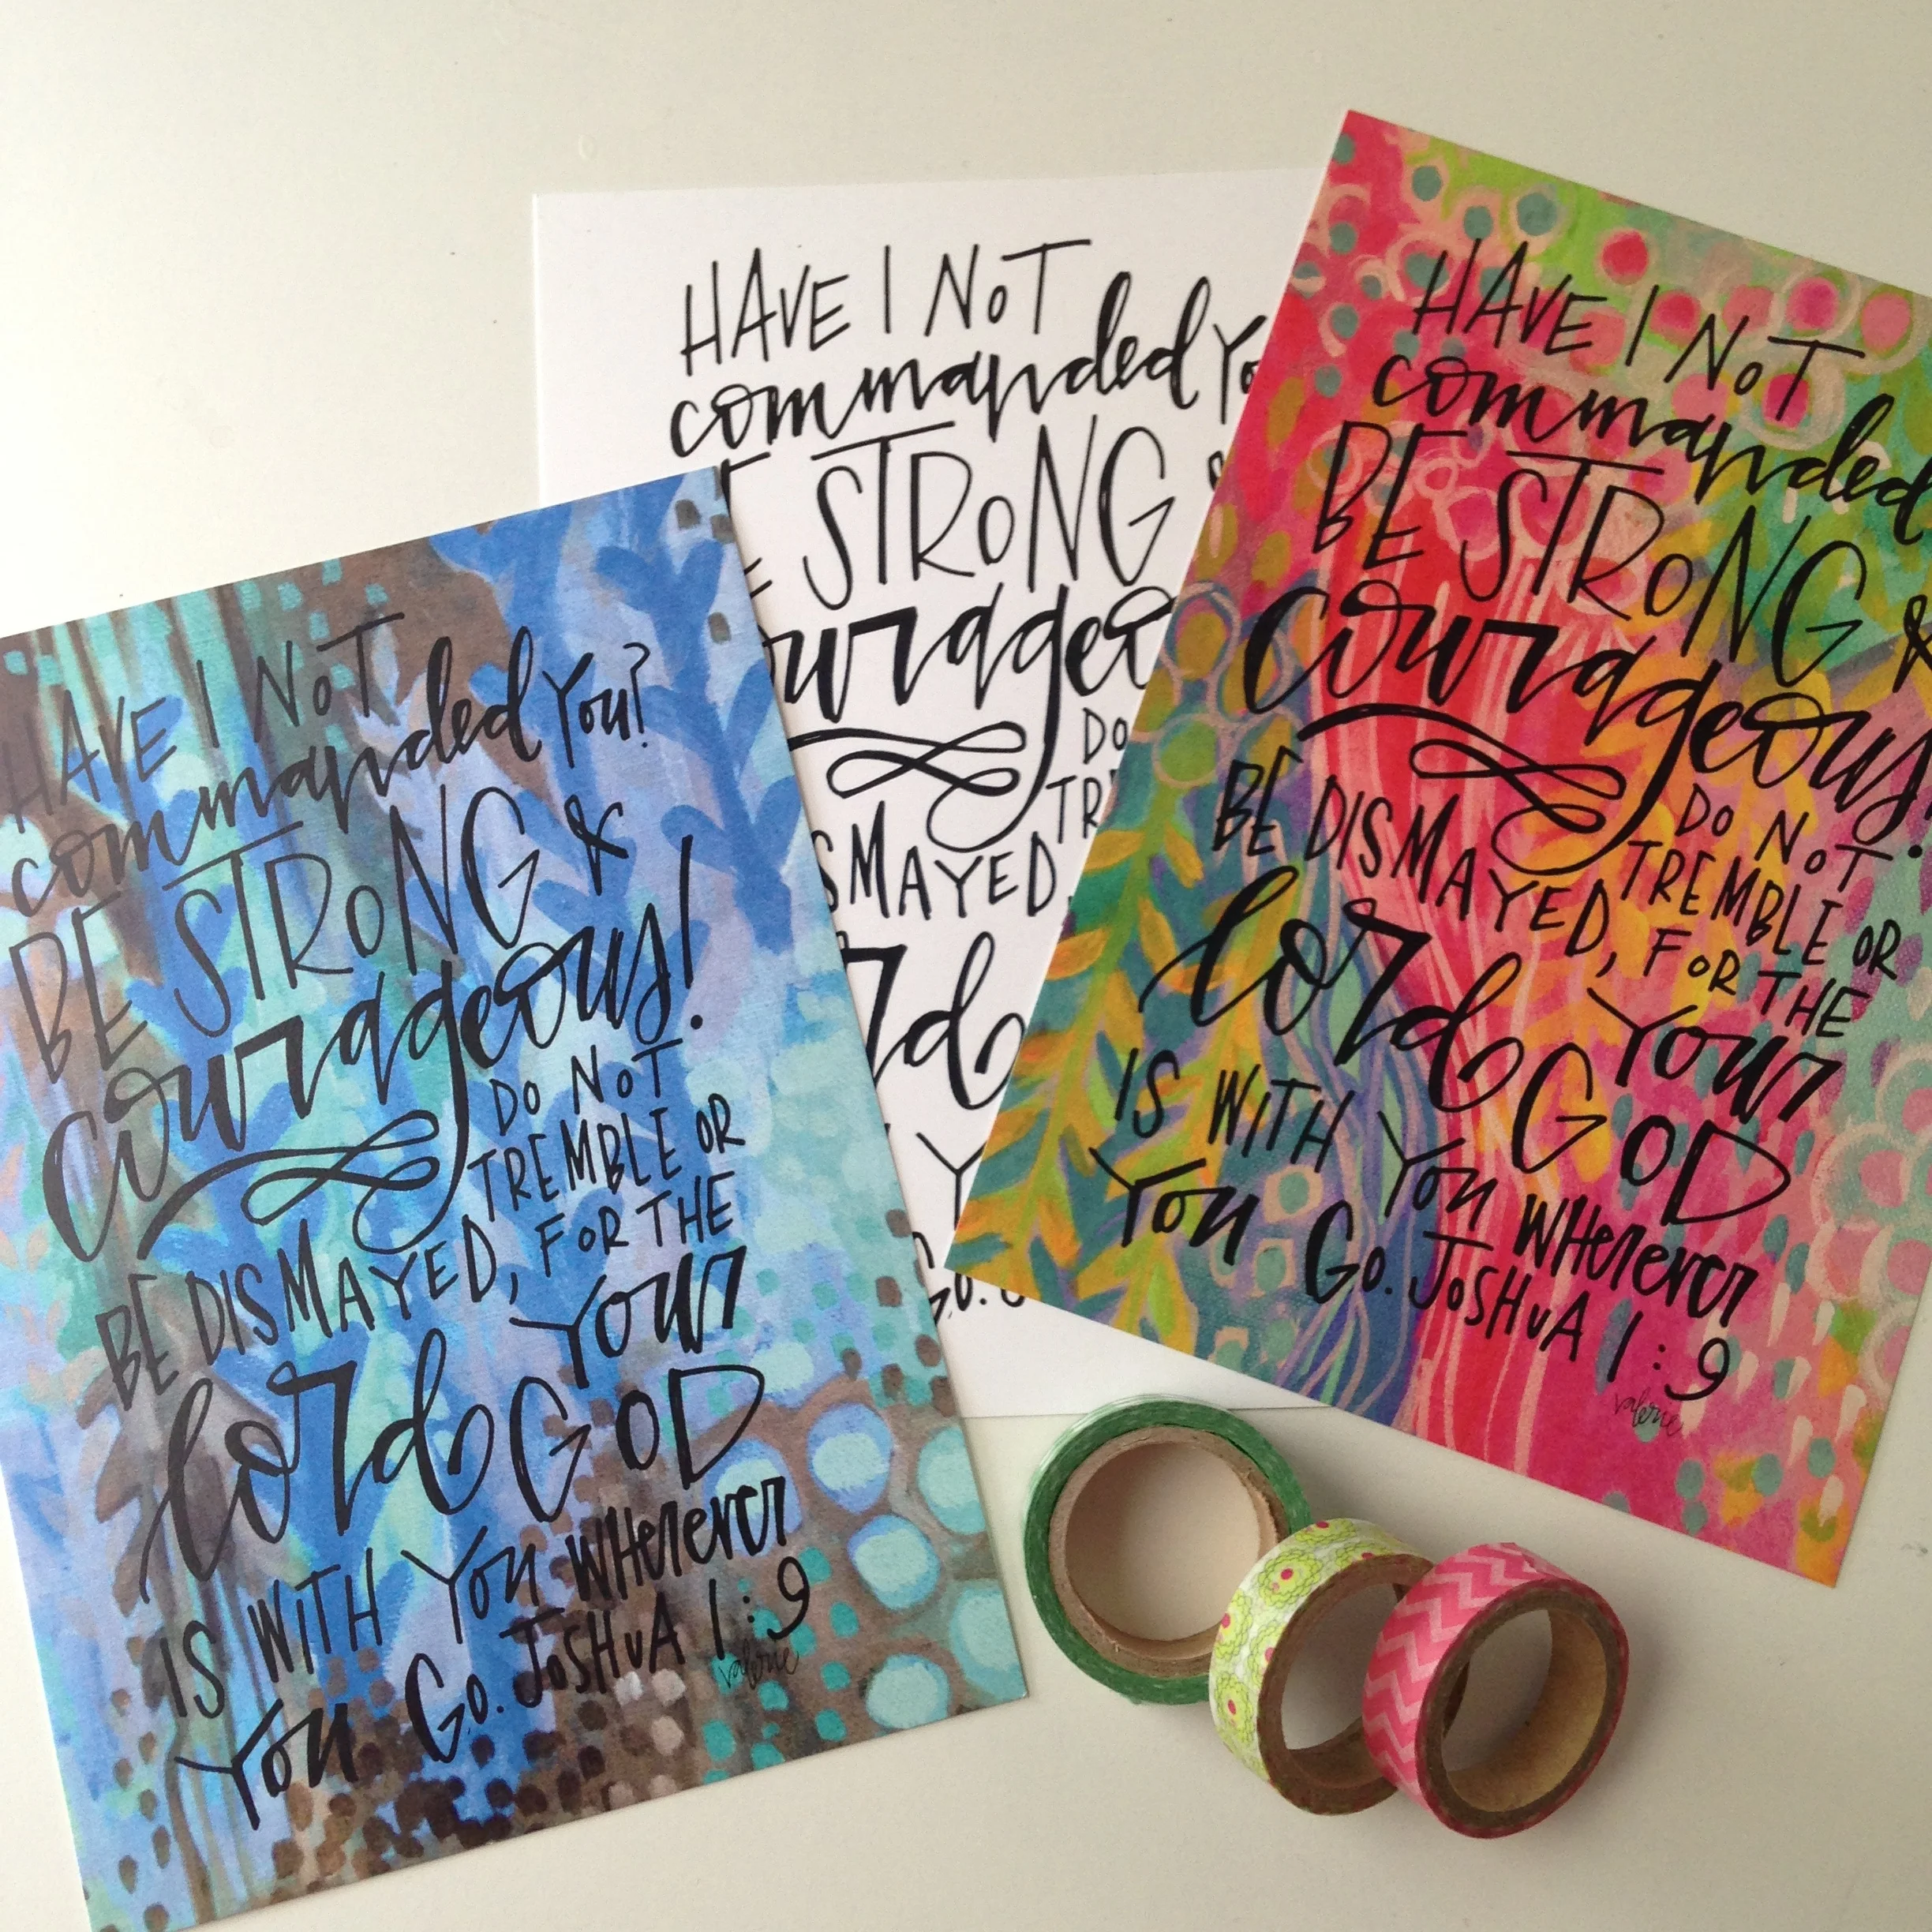 HAVE I NoT
commanded You?
BE STRoNG &
courageous!
Do NoT
TREMBLE OR
BE DISMAYED, FoR THE
lord Your
GoD
IS WiTH You WHerever
You Go. JoSHuA 1:9
valerie
HAVE I NoT
commanded
STRoNG
Do
HAVE I NoT
commanded
BE STRoNG &
courageous!
Do NoT
TREMBLE OR
BE DISMAYED, FoR THE
lord Your
GoD
IS WiTH You WHerever
You Go. JoSHuA 1:9
valerie